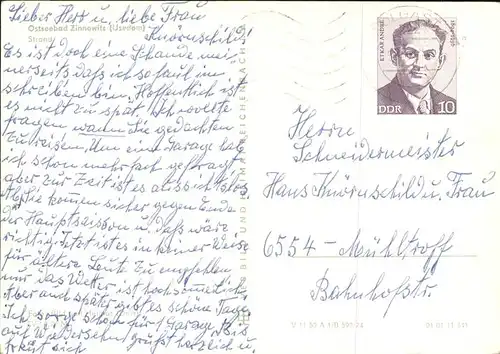 Lieber Herr u. liebe Frau
Knörnschild!
Ostseebad Zinnowitz (Usedom)
Strand
Es ist doch eine Schande mei-
nerseits daß ich so faul im
schreiben bin. Hoffentlich ist
es nicht zu spät. Ich wollte
fragen wann Sie gedachten
zu reisen. Um eine Garage hab
ich schon mehrfach gefragt,
aber zur Zeit ist es aussichtslos
Sie kommen sicher gegen Ende
der Hauptsaison u. daß wäre
richtig. Jetzt ist es in keiner Weise
für ältere Leute zu empfehlen
nur das Wetter ist hochsommerlich
Aber auch später gibt es schöne Tage.
Ich sorge schon für 1 Garage. Bis
auf Wiedersehen grüßt herzlich u.
freut sich
BILD UND HEIMAT REICHENBACH
ETKAR ANDRÉ
1894-1936
DDR 10
Herrn
Schneidermeister
Hans Knörnschild u. Frau
6554 – Mühltroff
Bahnhofstr.